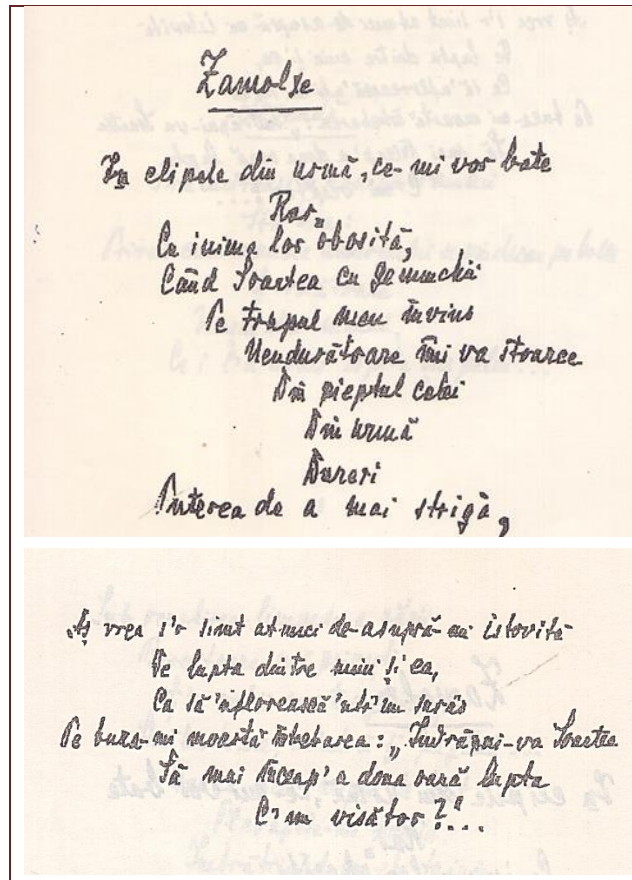 Zamolxe
În clipele din urmă, ce-mi vor bate
Rar,
Cu inima lor obosită,
Când Soartea cu genunchii
Pe trupul meu învins
Neîndurătoare îmi va stoarce
Din pieptul celei
Din urmă
Dureri
Puterea de a mai strigă,
Aș vrea s'o simt atunci de-asupră-mi istovită
De lupta dintre mine și ea,
Ca să 'nflorească 'ntr'un surâs
Pe buza-mi moartă întrebarea: „Îndrăzni-va Soartea
Să mai înceap' a doua oară lupta
C'un visător?"...